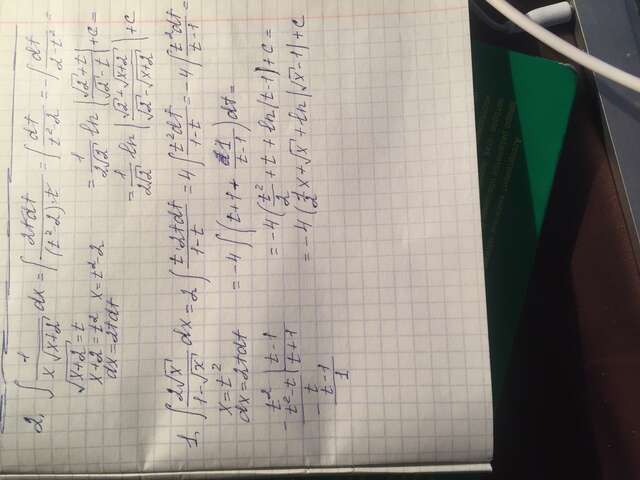 2. ∫ 1/(x√(x+2)) dx = ∫ 2tdt/((t²-2)·t) = ∫ dt/(t²-2) = -∫ dt/(2-t²) =
√(x+2) = t
x+2 = t² x = t²-2
dx = 2tdt
= 1/(2√2) ln |(√2+t)/(√2-t)| + c =
= 1/(2√2) ln |(√2+√(x+2))/(√2-√(x+2))| + c
1. ∫ 2√x/(1-√x) dx = 2∫ t·2tdt/(1-t) = 4∫ t²dt/(1-t) = -4∫ t²dt/(t-1) =
x = t²
dx = 2tdt
= -4∫ (t+1+ 1/(t-1)) dt =
- t² | t-1
t²-t | t+1
- t
t-1
1
= -4(t²/2 + t + ln|t-1|) + c =
= -4(1/2 x + √x + ln|√x-1| + c